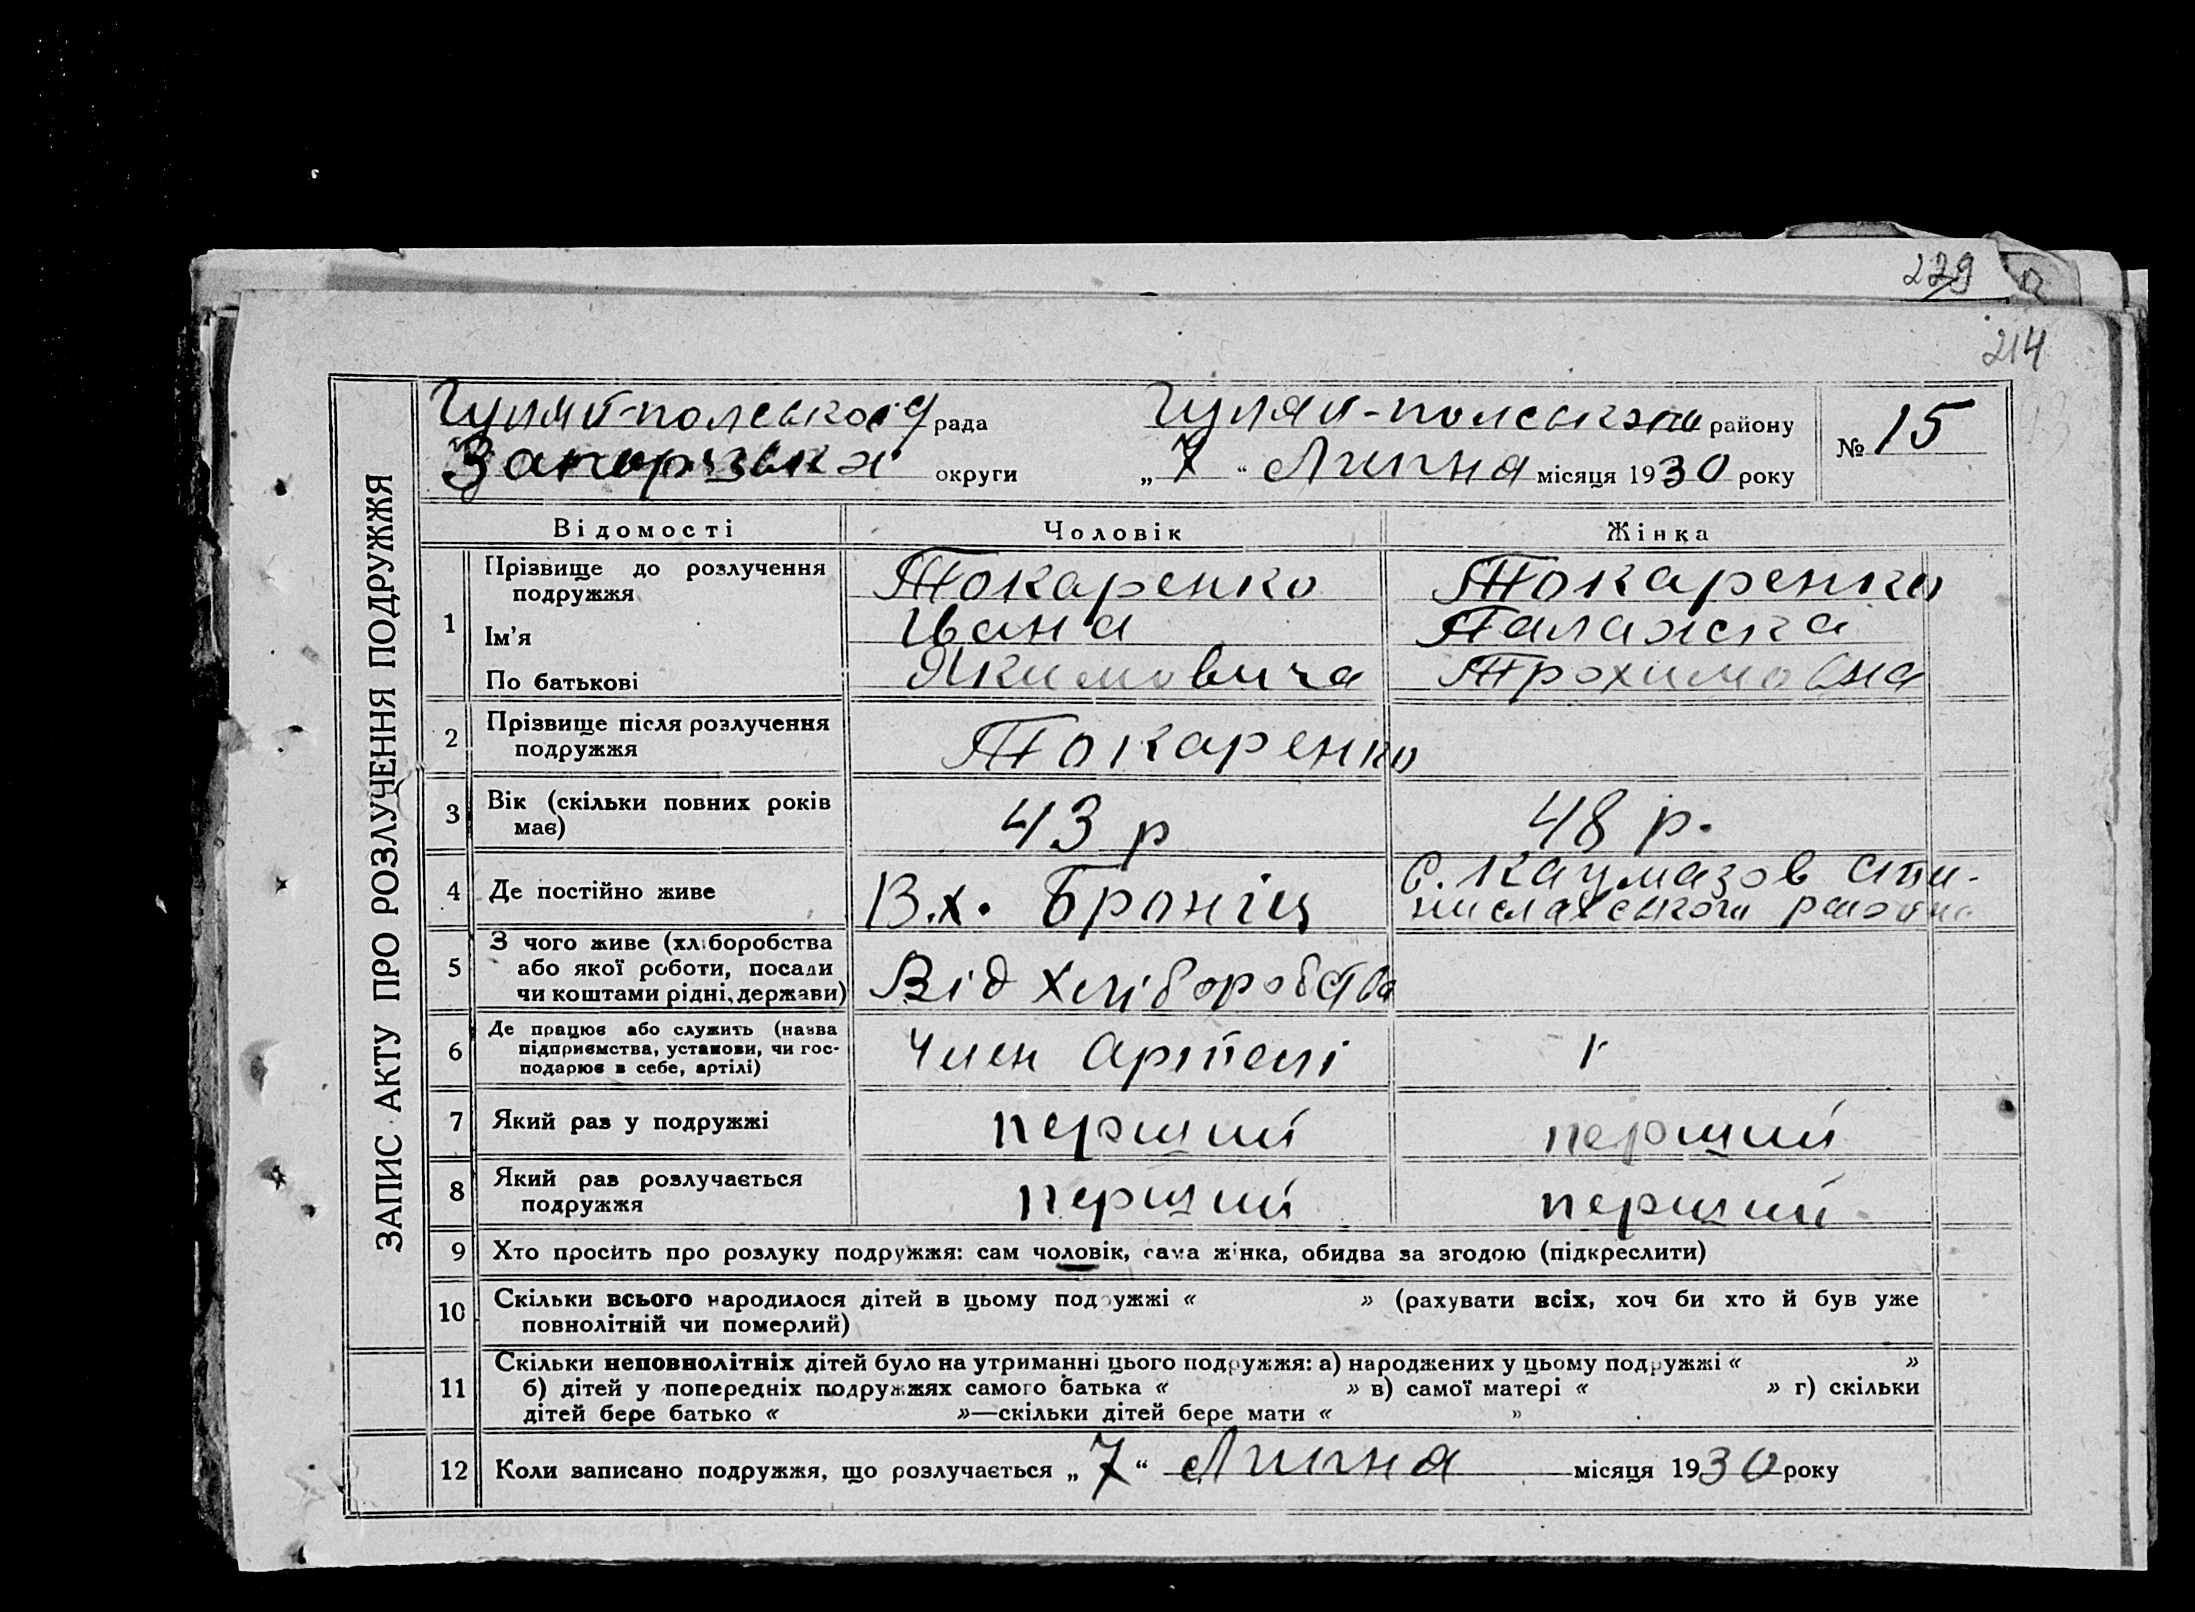 229
214
ЗАПИС АКТУ ПРО РОЗЛУЧЕННЯ ПОДРУЖЖЯ
Гуляй-полської рада
Гуляй-полського району
№ 15
округи
„ 7 “ Липня місяця 1930 року
Відомості Чоловік Жінка
1 Прізвище до розлучення подружжя Токаренко Токаренко
Ім'я Івана Палажка
По батькові Якимовича Трохимовна
2 Прізвище після розлучення
подружжя Токаренко
3 Вік (скільки повних років
має) 43 р 48 р.
4 Де постійно живе В.х. С.
району
5 З чого живе (хліборобства
або якої роботи, посади
чи коштами рідні, держави) Від хліборобства
6 Де працює або служить (назва
підприємства, установи, чи гос-
подарює в себе, артілі) Член Артелі
7 Який раз у подружжі перший перший
8 Який раз розлучається
подружжя перший перший
9 Хто просить про розлуку подружжя: сам чоловік, сама жінка, обидва за згодою (підкреслити)
10 Скільки всього народилося дітей в цьому подружжі « » (рахувати всіх, хоч би хто й був уже
повнолітній чи померлий)
11 Скільки неповнолітніх дітей було на утриманні цього подружжя: а) народжених у цьому подружжі « »
б) дітей у попередніх подружжях самого батька « » в) самої матері « » г) скільки
дітей бере батько « »—скільки дітей бере мати « »
12 Коли записано подружжя, що розлучається „ 7 “ Липня місяця 1930 року